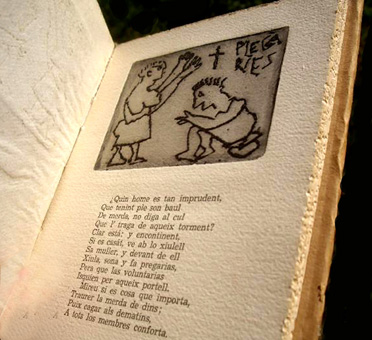 PLEGA
RIES
¿Quin home es tan imprudent,
Que tenint ple son baul
De morda, no diga al cul
Que l' traga de aqueix torment?
Clar está: y encontinent,
Si es casát, ve ab lo xiulell
Sa muller, y devant de ell
Xiula, sona y fa pregarias,
Pera que las voluntarias
Isquien per aqueix portell.
Mireu si es cosa que importa,
Traurer la merda de dins;
Puix cagar als dematins,
A tots los membres conforta.